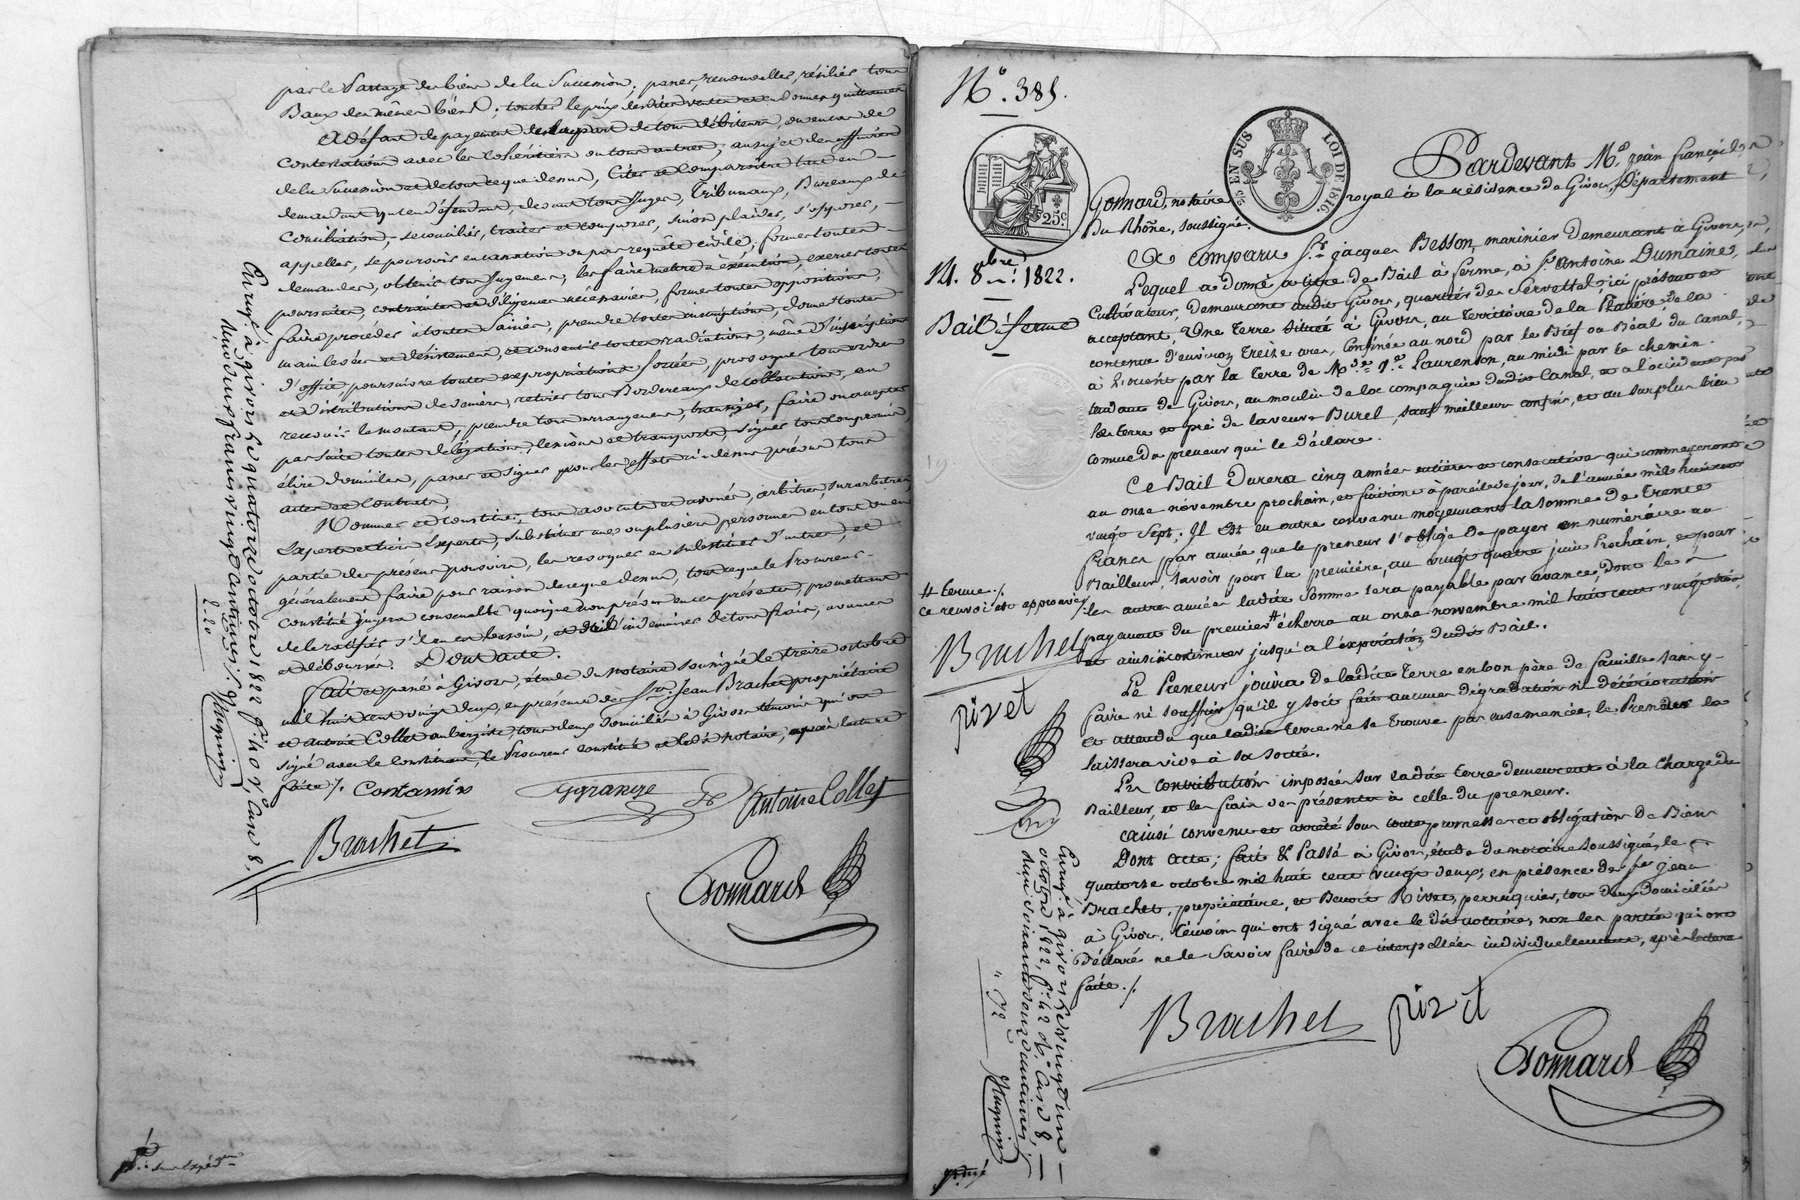 par le Partage des biens de la Succession; passer, renouveller, résilier tous
Baux des mêmes biens; toucher le prix desdites ventes et en donner quittances
A défaut de payement de la part de tous débiteurs, ou en cas de
contestation avec les Cohéritiers ou tous autres, au sujet des affaires
de la Succession et de tout ce que dessus, Citer et Comparoître tant en
demandant qu'en défendant, devant tous Juges, Tribunaux, Bureaux de
Conciliation, se concilier, traiter et composer, sinon plaider, s'opposer,
appeller, se pourvoir en cassation ou par requête civile, former toutes
demandes, obtenir tous Jugemens, les faire mettre à exécution, exercer toutes
poursuites, contraintes et diligences nécessaires, former toutes oppositions,
faire procéder à toutes saisies, prendre toutes inscriptions, donner toutes
mainlevées et désistemens, et consentir toutes radiations, même d'inscriptions
d'office, poursuivre toutes expropriations forcées, provoquer tous ordres
et distributions de deniers, retirer tous Bordereaux de collocations, en
recevoir le montant, prendre tous arrangemens, transiger, faire ou accepter
par suite toutes délégations, cessions et transports, signer tous compromis,
élire domicile, passer et signer pour les effets ci-dessus prévus tous
actes et Contrats,
Nommer et constituer tous avocats et avoués, arbitres, surarbitres,
Experts et tiers Experts, substituer une ou plusieurs personnes en tout ou en
partie des présens pouvoirs, les révoquer en substituer d'autres, et
généralement faire pour raison de ce que dessus, tout ce que le Procureur
Constitué jugera convenable quoique non prévu en ces présentes, promettant
de le ratifier s'il en est besoin, et de l'indemniser de tous frais, avances
et débourses. Dont acte.
Fait et passé à Givors, étude du Notaire soussigné le treize octobre
mil huit cent vingt deux, en présence de Srs. Jean Brachet propriétaire
et Antoine Collet aubergiste, tous deux domiciliés à Givors témoins qui ont
signé avec le Constituant, le Procureur Constitué et led. Notaire, après lecture
faite /. Contamin Granger Antoine Collet
Brachet
Gonnard
Enregé. à givors le quatorze octobre 1822 fo. 107, Case 8,
Reçu deux francs vingt centimes /.
2.20
Huguin
No. 385.
25c
25c EN SUS
LOI DE 1816
14. 8bre. 1822.
Bail à ferme
Pardevant Me. Jean françois
Gonnard, notaire royal à la résidence de Givors, Département
Du Rhône, soussigné.
A comparu Sr. jacques Besson, marinier demeurant à Givors,
Lequel a donné à titre de Bail à ferme, à Sr. Antoine Dumaine,
Cultivateur, demeurant audit Givors, quartier de Servettel, ici présent et
acceptant, Une Terre située à Givors, au territoire de la Platière, de la
contenue d'environ treize ares, Confinée au nord par le Bief ou Béal du Canal,
à l'orient par la Terre de Mr. Laurenson, au midi par le chemin
tendant de Givors, au moulin de la compagnie dudit Canal, et à l'occident par
la terre et pré de la veuve Burel, sauf meilleurs confins, et au surplus bien
connue du preneur qui le déclare.
Ce Bail durera cinq années entières et consécutives qui commenceront
au onze novembre prochain, et finiront à pareil jour, de l'année mil huit cent
vingt sept. Il est en outre convenu moyennant la somme de Trente
francs par année, que le preneur s'oblige de payer en numéraire au
Bailleur, savoir pour la première, au vingt quatre juin Prochain, et pour
les autres années ladite somme sera payable par avance, dont le
payement du premier # écherra au onze novembre mil huit cent vingt trois,
et ainsi continuer jusqu'à l'expiration dudit Bail.
# terme /.
ce renvoi est approuvé
Brachet
pivet
Le Preneur jouira de ladite Terre en bon père de famille sans y
faire ni souffrir qu'il y soit fait aucune dégradation ni détérioration
et attendu que ladite terre ne se trouve pas ensemencée, le Preneur la
laissera vive à sa sortie.
Les contributions imposées sur ladite terre demeurent à la charge du
Bailleur, et les frais des présentes à celle du preneur.
Cainsi convenu et arrêté sous toutes promesses et obligations de Biens
Dont acte; fait & Passé à Givors, étude du notaire soussigné, le
quatorze octobre mil huit cent vingt deux, en présence de Srs. Jean
Brachet, propriétaire, et Benoit Rivet, perruquier, tous deux domiciliés
à Givors, témoins qui ont signé avec le dit notaire, non les parties qui ont
déclaré ne le savoir faire de ce interpellées individuellement, après lecture
faite. /.
Brachet pivet
Gonnard
Enregé. à givors le vingt un
octobre 1822, fo. 42 Vo. Case 8
Huguin